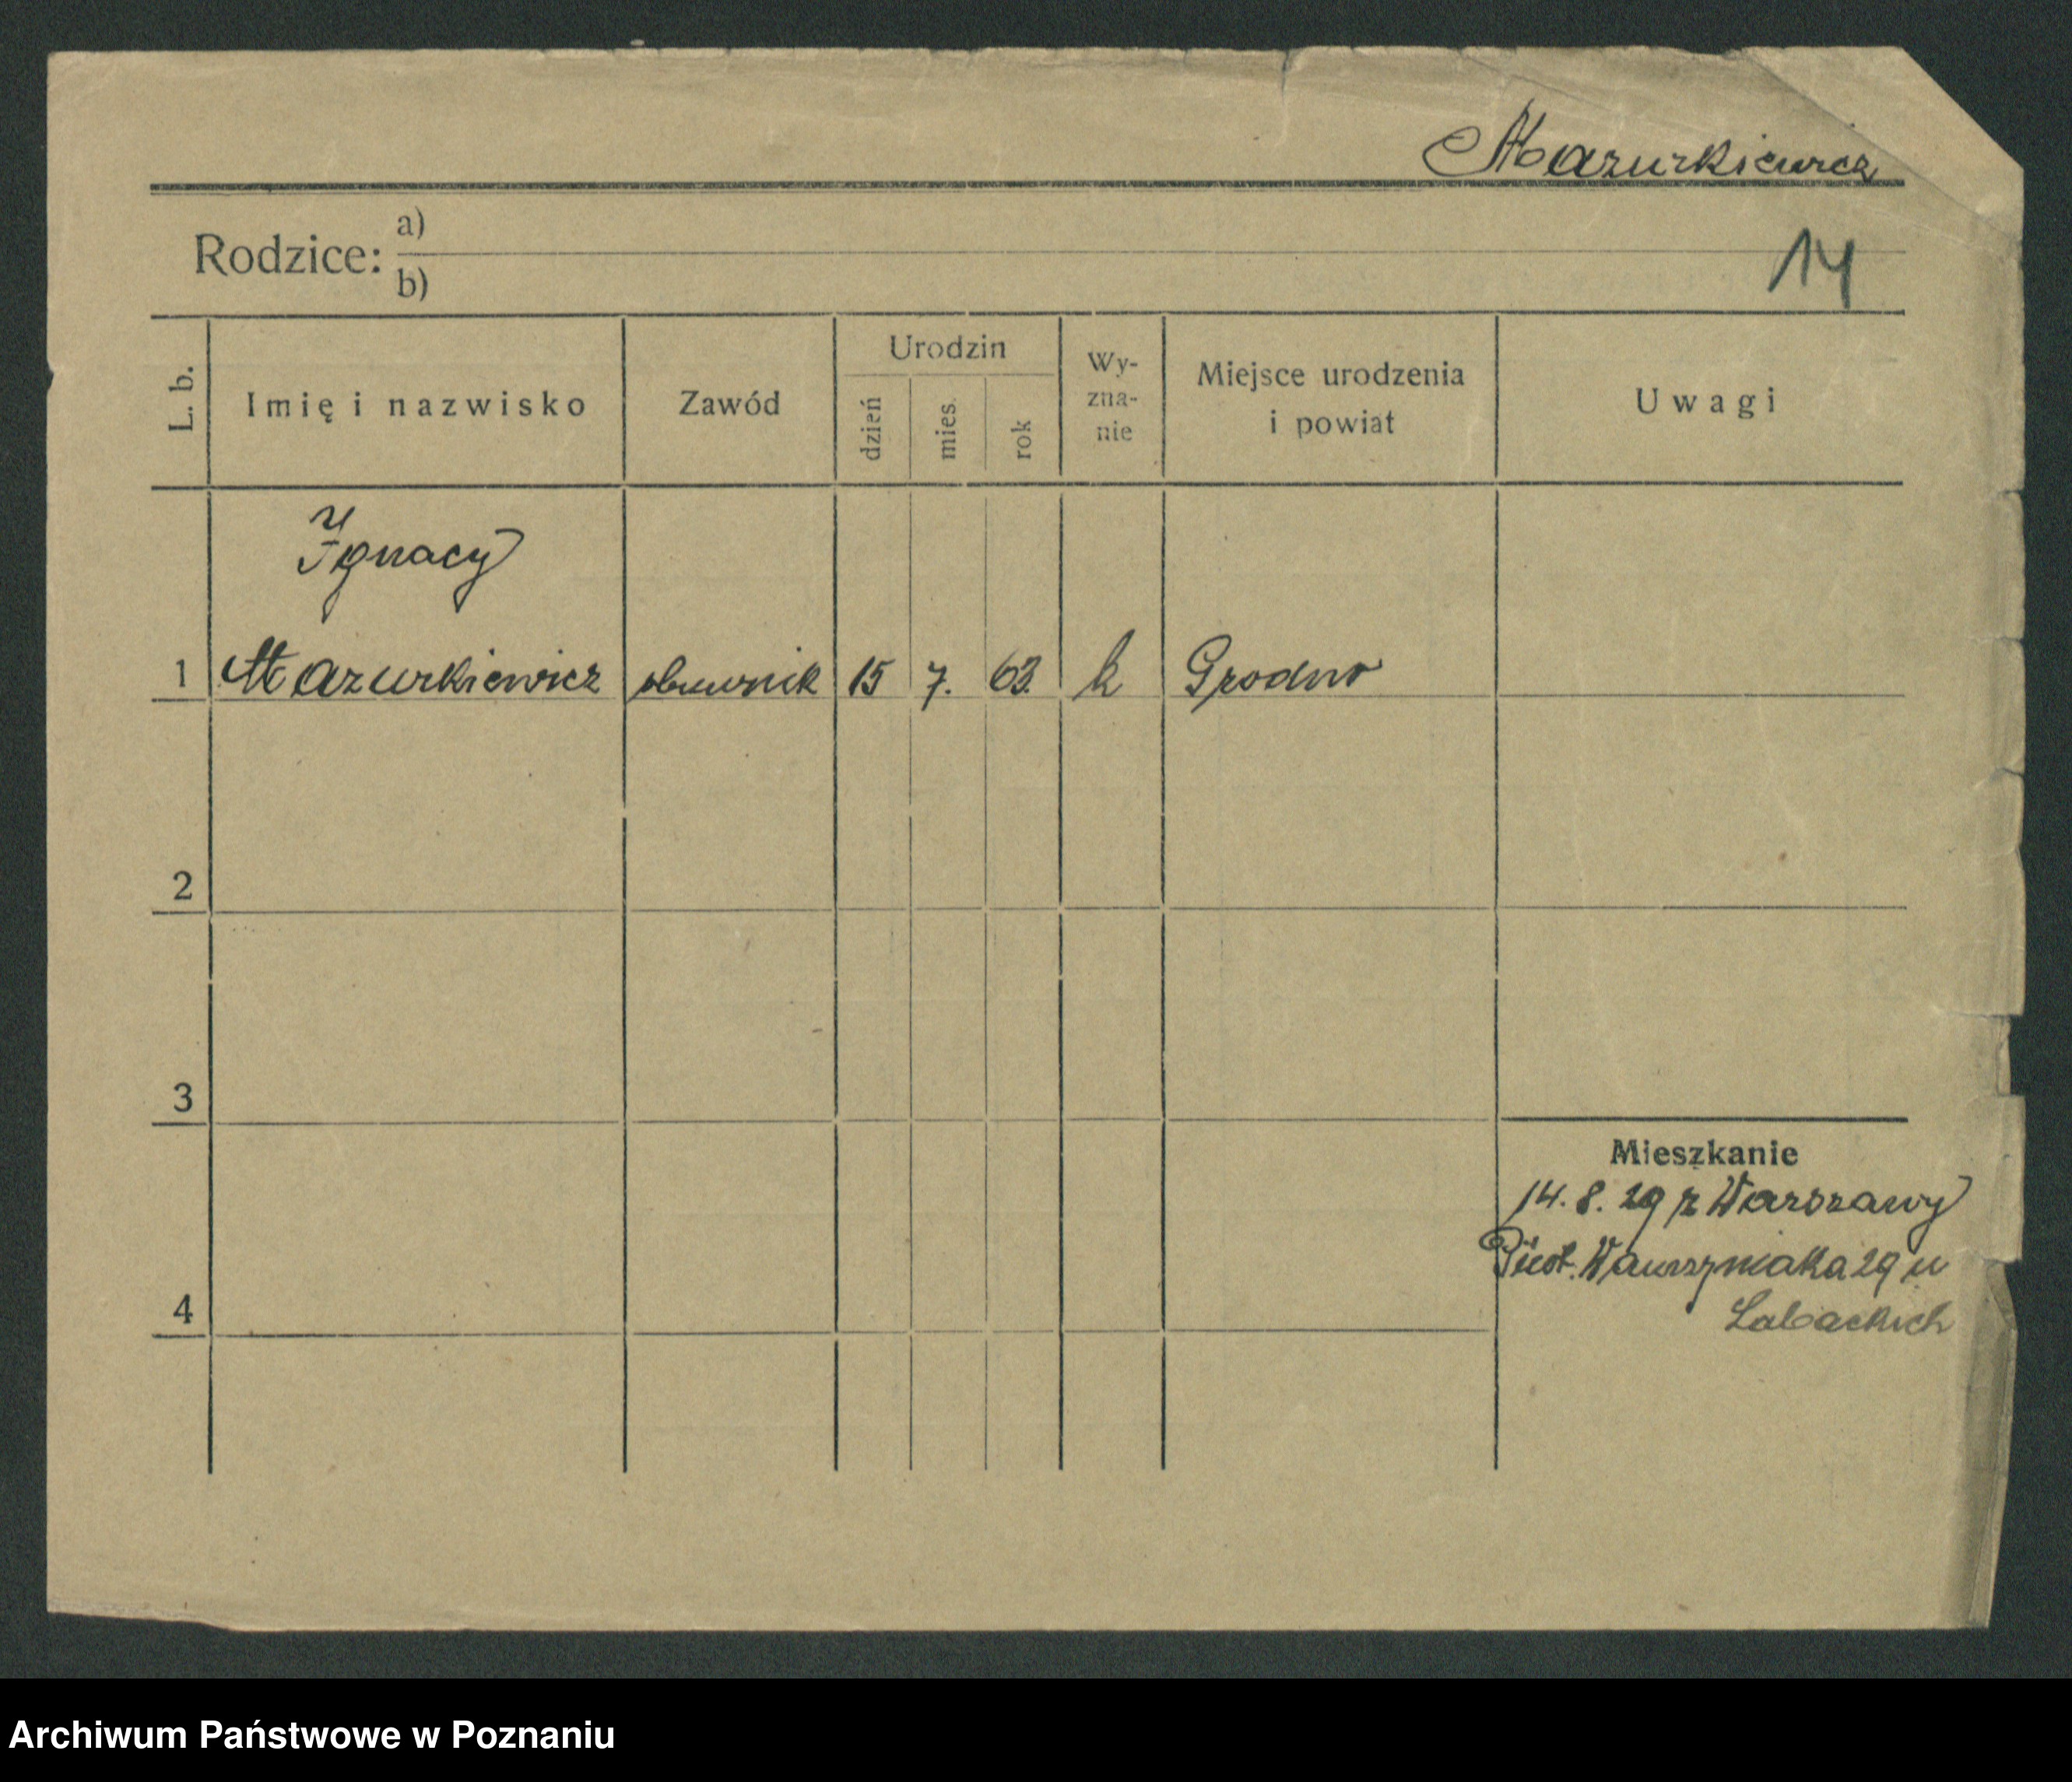 Mazurkiewicz
Rodzice: a)
b)
14
L. b.
Imię i nazwisko
Zawód
Urodzin
dzień
mies.
rok
Wy-
zna-
nie
Miejsce urodzenia
i powiat
Uwagi
Ignacy
1 Mazurkiewicz obuwnik 15 7. 63. k Grodno
2
3
4
Mieszkanie
14. 8. 29 z Warszawy
Wawrzyniaka 29 u
Archiwum Państwowe w Poznaniu